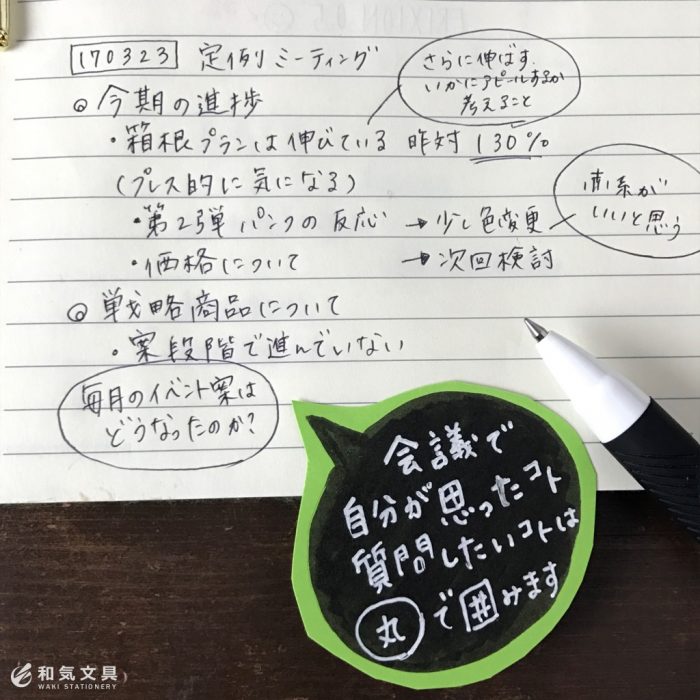 170323 定例ミーティング
◎今期の進捗
・箱根プランは伸びている 昨対 130%
さらに伸ばす.
いかにアピールするか
考えること
(プレス的に気になる)
・第2弾パンクの反応 → 少し色変更
いいと思う
・価格について → 次回検討
◎戦略商品について
・案段階で進んでいない
毎月のイベント案は
どうなったのか?
会議で
自分が思ったコト
質問したいコトは
丸で囲みます
和気文具
WAKI STATIONERY